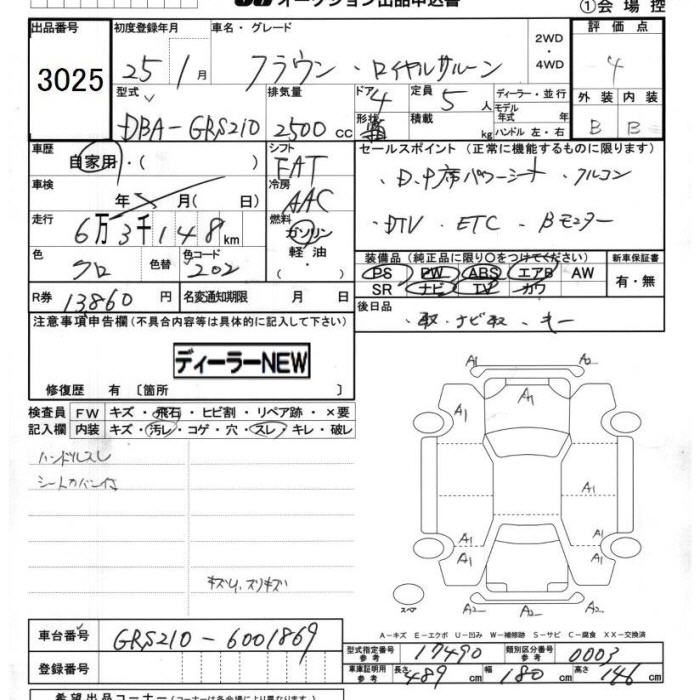 オークション出品申込書
①会場控
出品番号
3025
初度登録年月
25年 1月
車名・グレード
クラウン・ロイヤルサルーン
2WD
・4WD
評価点
4
外装 内装
B B
型式
DBA-GRS210
排気量
2500cc
ドア 4
形状 箱
定員 5人
積載 kg
ディーラー・並行
モデル年式 年
ハンドル 左・右
車歴
自家用・( )
シフト
FAT
車検
年 月( 日)
冷房
AAC
走行
6万3千148km
燃料
ガソリン
軽油
色
クロ
色替
色コード
202
R券
13860円
名変通知期限 月 日
セールスポイント (正常に機能するものに限ります)
・D.中席パワーシート ・クルコン
・DTV ・ETC ・Bモニター
装備品(純正品に限り○をつけてください)
PS PW ABS エアB AW
SR ナビ TV カワ
新車保証書
有・無
後日品
・取・ナビ取・キー
注意事項申告欄(不具合内容等は具体的に記入して下さい)
ディーラーNEW
修復歴 有 〔箇所 〕
検査員記入欄
FW キズ・飛石・ヒビ割・リペア跡・×要
内装 キズ・汚レ・コゲ・穴・スレ・キレ・破レ
ハンドルスレ
シートカバー付
キズ小、スリキズ
A1 A2
A1
A1
A1
A1 A1
A1 A1
スペア
A2 A2
A-キズ E-エクボ U-凹み W-補修跡 S-サビ C-腐食 XX-交換済
車台番号
GRS210-6001869
登録番号
型式指定番号参考 17490
類別区分番号参考 0003
車庫証明用参考 長さ489cm 幅180cm 高さ146cm
希望出品コーナー